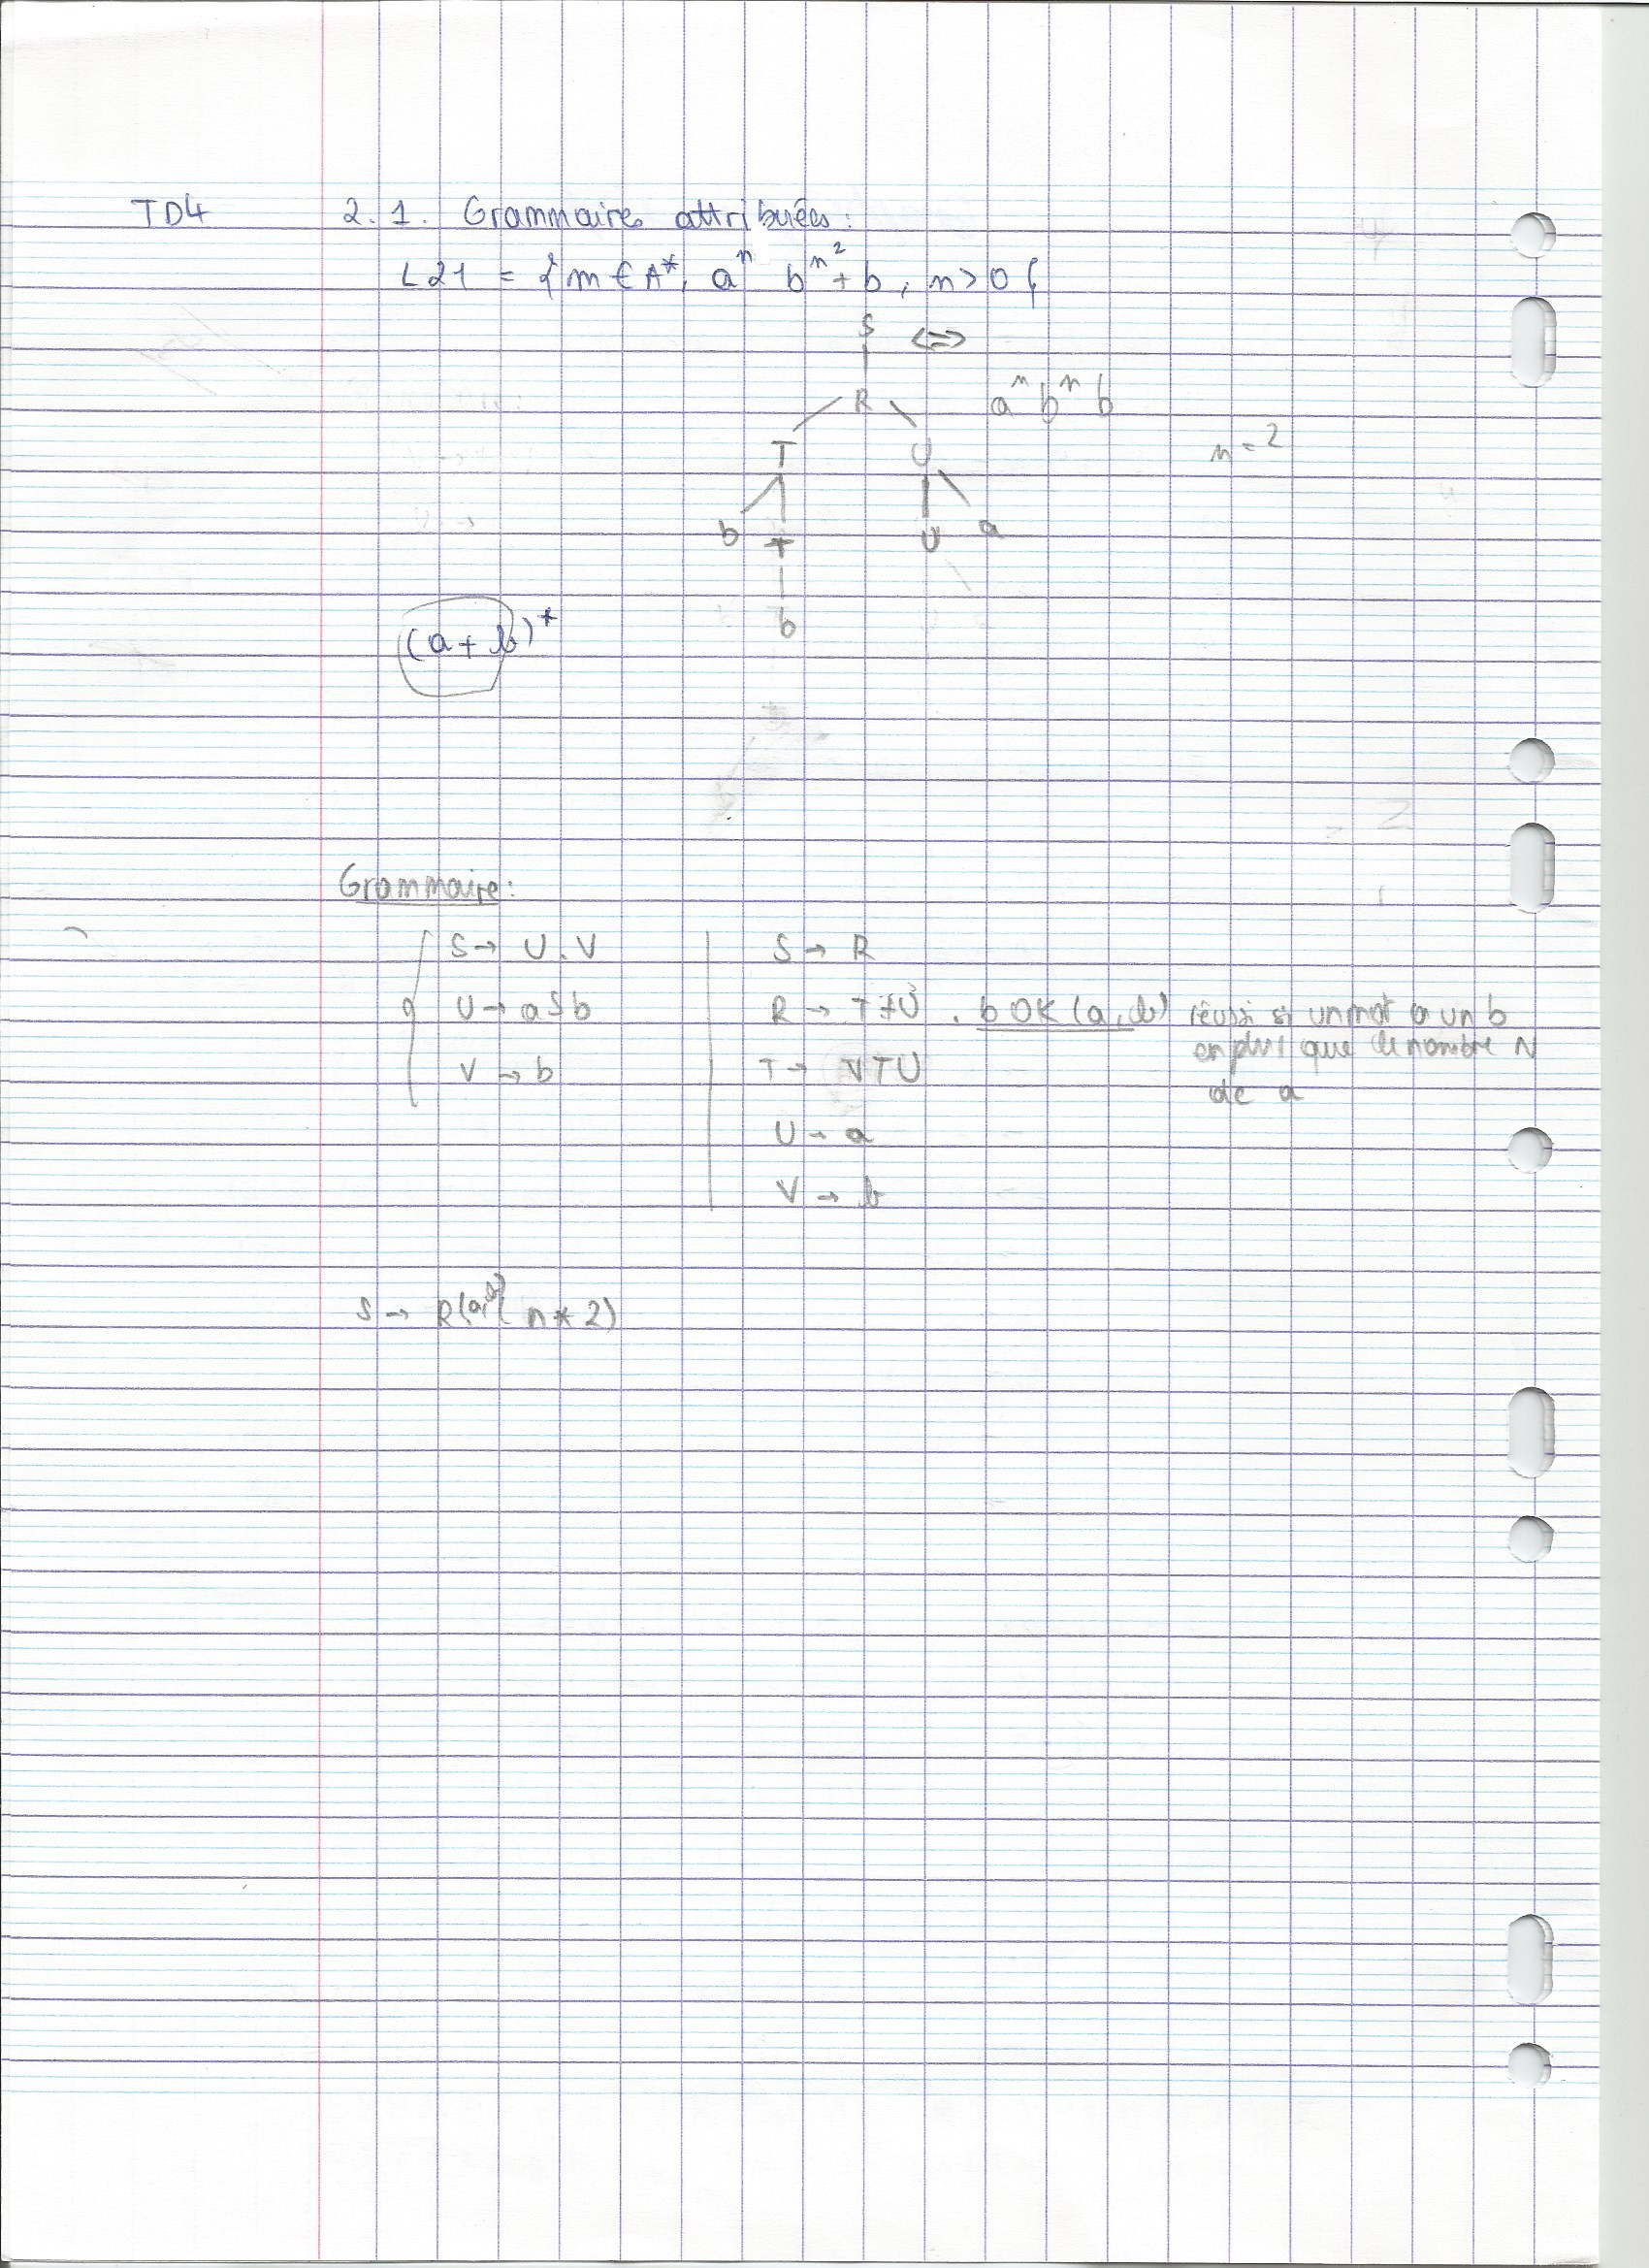 TD4 2.1. Grammaires attribuées :
L21 = { m ∈ A*, aⁿ bⁿ² + b, n > 0 {
S <=>
R aⁿ bⁿ b
T U n = 2
b T U a
b
(a + b)*
Grammaire :
S → U.V S → R
U → aSb R → T . b OK (a, b) réussi si un mot a un b
en plus que le nombre N
V → b T → VTU
de a
U → a
V → b
S → R(a,b)( n * 2)